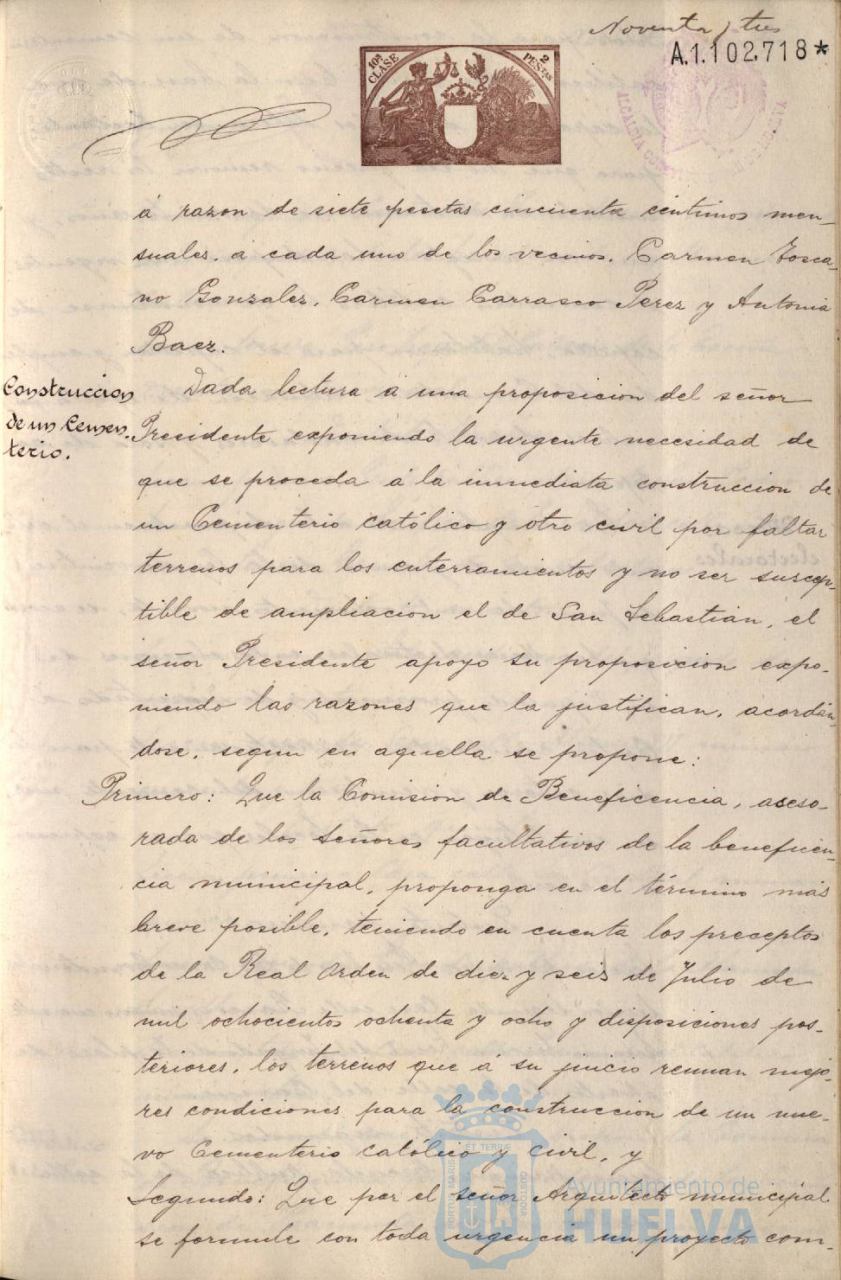 Noventa y tres
A.1.102.718*
10ª CLASE
2 PESETAS
á razon de siete pesetas cincuenta céntimos men-
suales, á cada uno de los vecinos, Carmen Tosca-
no Gonzalez, Carmen Carrasco Perez y Antonia
Baez.
Construccion
de un Cemen-
terio.
Dada lectura á una proposicion del señor
Presidente exponiendo la urgente necesidad de
que se proceda á la inmediata construccion de
un Cementerio católico y otro civil por faltar
terrenos para los enterramientos y no ser suscep-
tible de ampliacion el de San Sebastian, el
señor Presidente apoyó su proposicion expo-
niendo las razones que la justifican, acordán-
dose, segun en aquella se propone:
Primero: Que la Comision de Beneficencia, aseso-
rada de los señores facultativos de la beneficen-
cia municipal, proponga en el término más
breve posible, teniendo en cuenta los preceptos
de la Real orden de diez y seis de Julio de
mil ochocientos ochenta y ocho y disposiciones pos-
teriores, los terrenos que á su juicio reunan mejo-
res condiciones para la construccion de un nue-
vo Cementerio católico y civil, y
Segundo: Que por el señor Arquitecto municipal
se formule con toda urgencia un proyecto com-
Ayuntamiento de
HUELVA